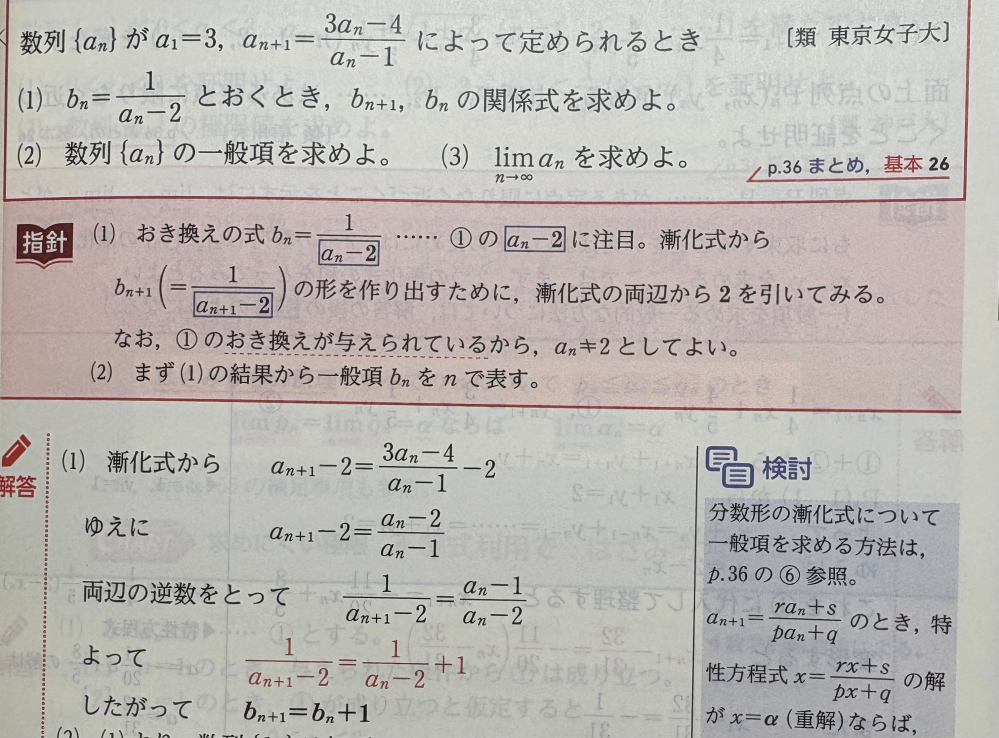 数列{aₙ}が a₁=3, aₙ₊₁=(3aₙ−4)/(aₙ−1) によって定められるとき [類 東京女子大]
(1) bₙ=1/(aₙ−2) とおくとき，bₙ₊₁，bₙ の関係式を求めよ。
(2) 数列{aₙ}の一般項を求めよ。 (3) lim_{n→∞} aₙ を求めよ。
p.36 まとめ，基本 26
指針
(1) おき換えの式 bₙ=1/(aₙ−2) …… ① の aₙ−2 に注目。漸化式から
bₙ₊₁(=1/(aₙ₊₁−2)) の形を作り出すために，漸化式の両辺から 2 を引いてみる。
なお，① のおき換えが与えられているから，aₙ≠2 としてよい。
(2) まず(1)の結果から一般項 bₙ を n で表す。
解答
(1) 漸化式から aₙ₊₁−2=(3aₙ−4)/(aₙ−1)−2
ゆえに aₙ₊₁−2=(aₙ−2)/(aₙ−1)
両辺の逆数をとって 1/(aₙ₊₁−2)=(aₙ−1)/(aₙ−2)
よって 1/(aₙ₊₁−2)=1/(aₙ−2)+1
したがって bₙ₊₁=bₙ+1
検討
分数形の漸化式について
一般項を求める方法は，
p.36 の ⑥ 参照。
aₙ₊₁=(raₙ+s)/(paₙ+q) のとき，特
性方程式 x=(rx+s)/(px+q) の解
が x=α (重解) ならば，